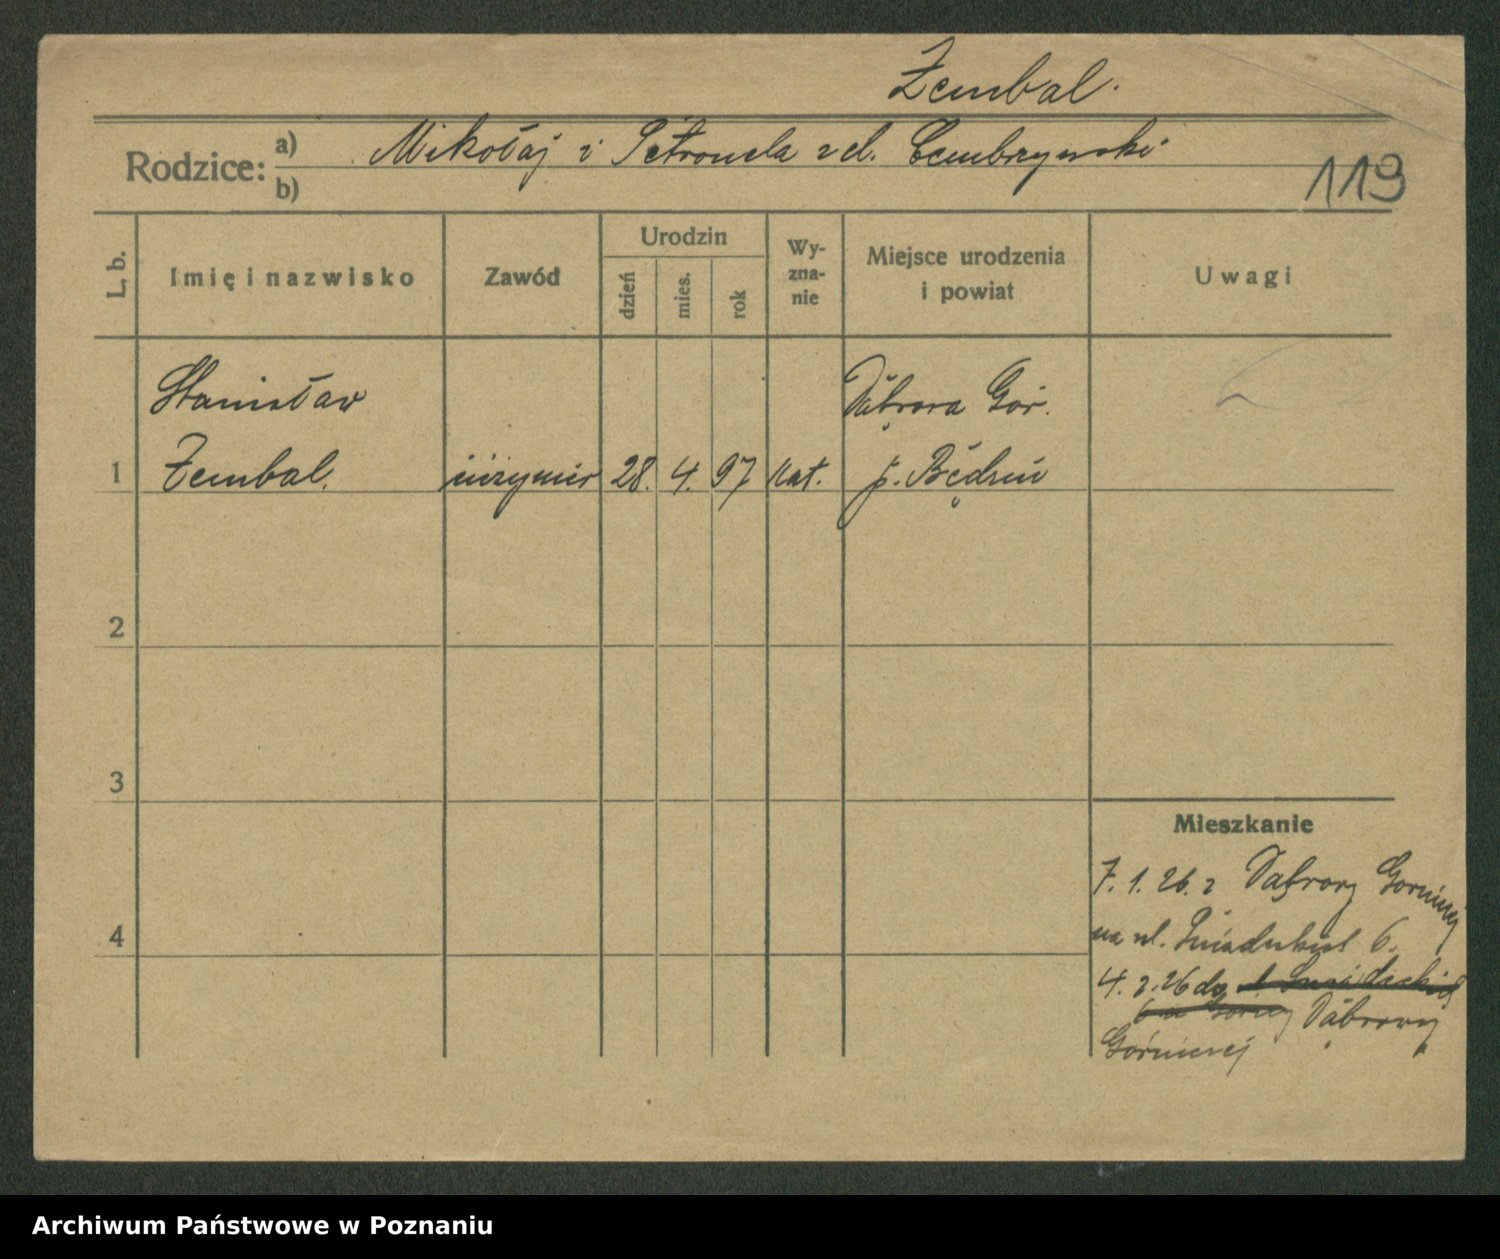 Zembal.
Rodzice: a) Mikołaj i Petronela z d. Cembrzynski
b)
119
L. b.
Imię i nazwisko
Zawód
Urodzin
dzień
mies.
rok
Wy-
zna-
nie
Miejsce urodzenia
i powiat
Uwagi
Stanisław
Dąbrowa Gór.
1 Zembal. inżynier 28. 4. 97 kat. p. Będzin
2
3
Mieszkanie
7. 1. 26. z Dąbrowy Gorniczej
4 na ul. 6.
4. 2. 26 do
6 Dąbrowy
Górniczej
Archiwum Państwowe w Poznaniu